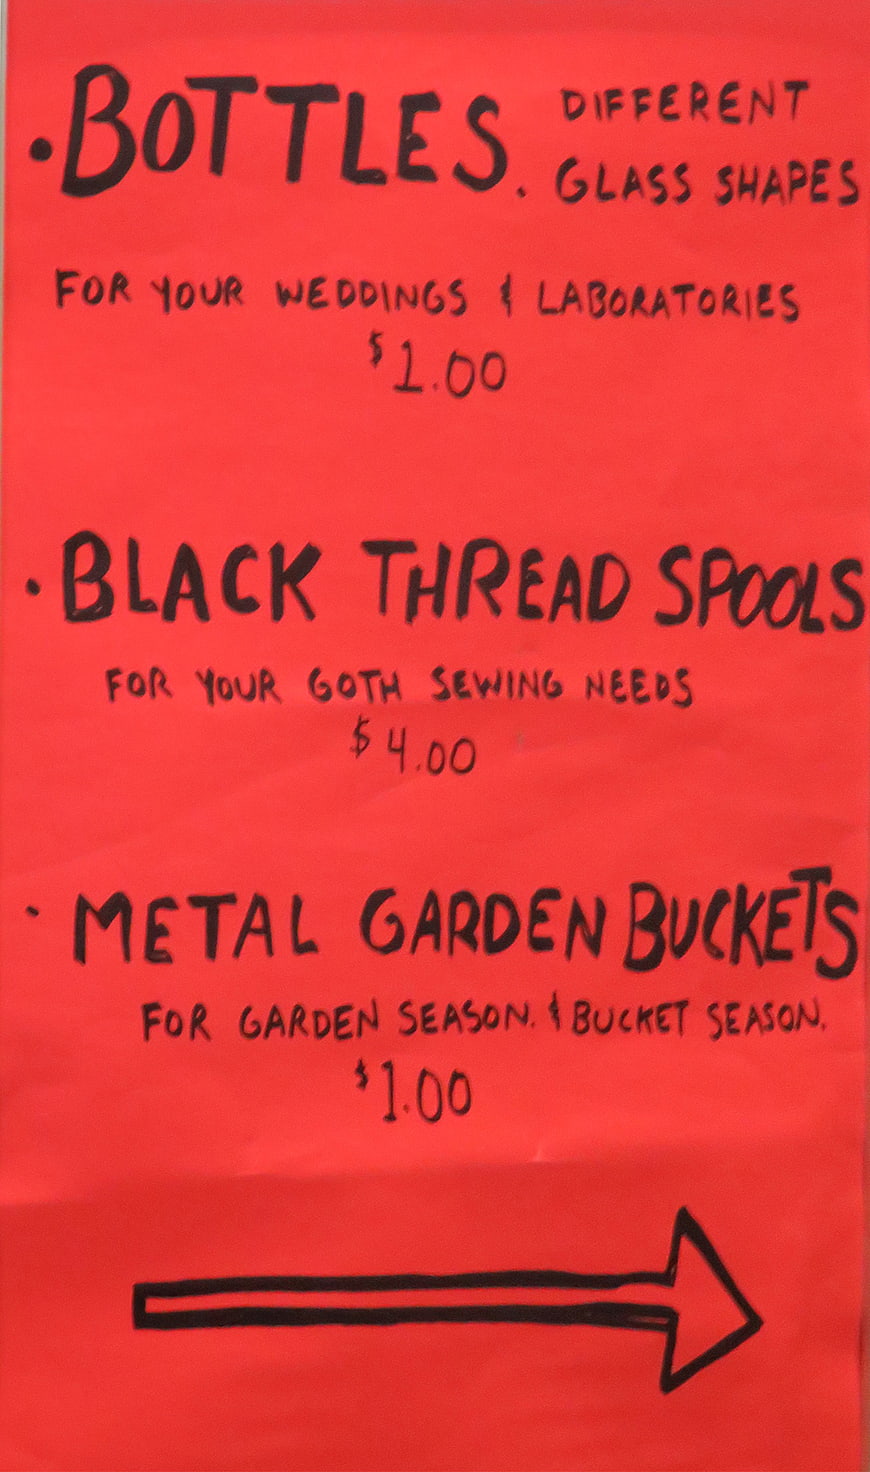 • BOTTLES. DIFFERENT
GLASS SHAPES
FOR YOUR WEDDINGS & LABORATORIES
$1.00
• BLACK THREAD SPOOLS
FOR YOUR GOTH SEWING NEEDS
$4.00
• METAL GARDEN BUCKETS
FOR GARDEN SEASON. & BUCKET SEASON.
$1.00